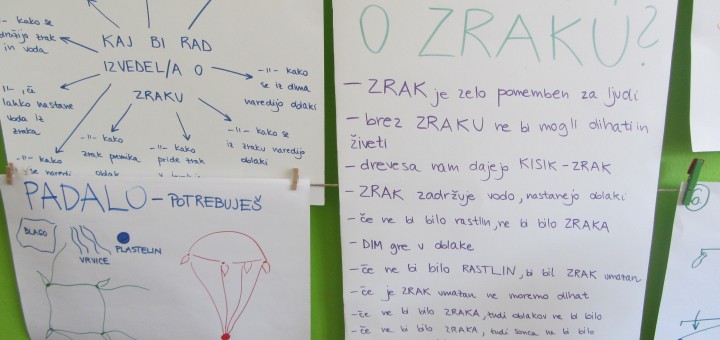 -"- kako se
združijo zrak
in voda
KAJ BI RAD
IZVEDEL/A O
ZRAKU
-"- kako
se iz dima
naredijo oblaki
-"-, če
lahko nastane
voda iz
zraka
-"- kako se
iz zraku naredijo
oblaki
-"- kako
zrak premika
oblake
-"- kako
pride zrak
-"- kako
se naredi
PADALO - POTREBUJEŠ
BLAGO
VRVICE
PLASTELIN
O ZRAKU?
- ZRAK je zelo pomemben za ljudi
- brez ZRAKU ne bi mogli dihati in
živeti
- drevesa nam dajejo KISIK - ZRAK
- ZRAK zadržuje vodo, nastanejo oblaki
- če ne bi bilo rastlin, ne bi bilo ZRAKA
- DIM gre v oblake
- če ne bi bilo RASTLIN, bi bil ZRAK umazan
- če je ZRAK umazan ne moremo dihat
- če ne bi bilo ZRAKA, tudi oblakov ne bi bilo
- če ne bi bilo ZRAKA, tudi sonca ne bi bilo